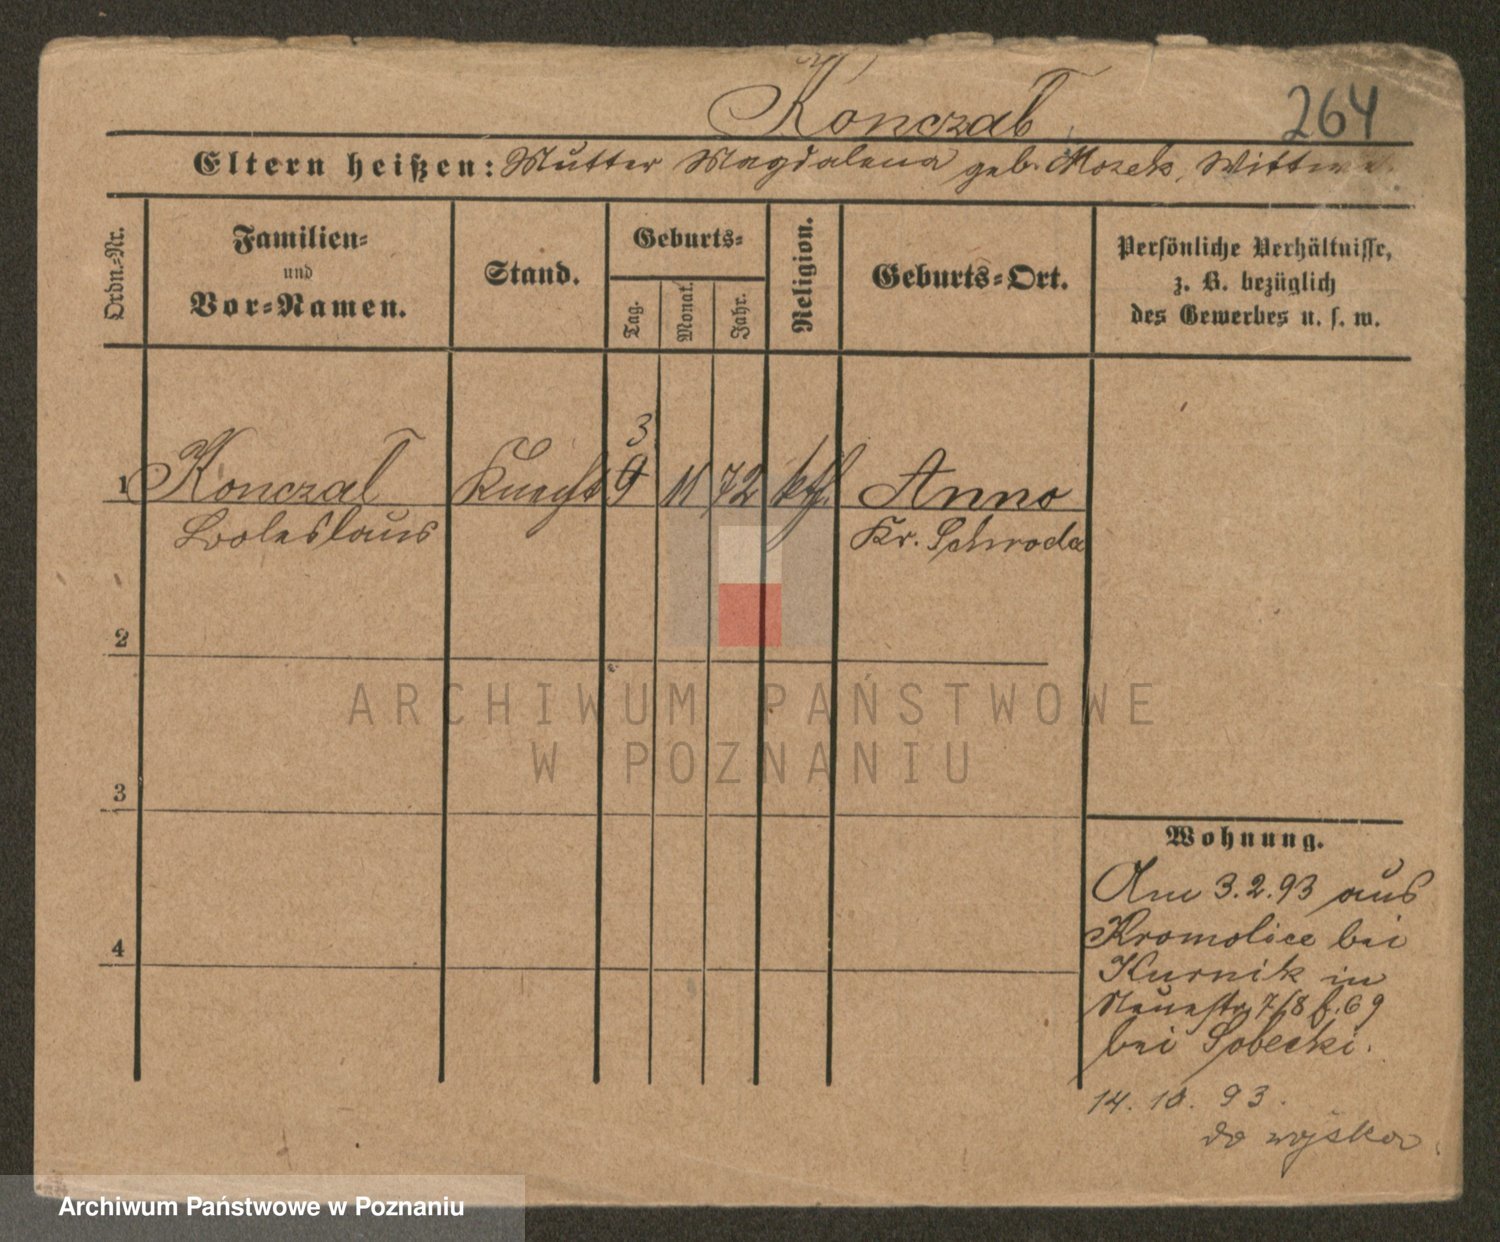 Konczal
264
Eltern heißen: Mutter Magdalena geb. Mozek, Wittwe.
Ordn.-Nr.
Familien-
und
Vor-Namen.
Stand.
Geburts-
Tag.
Monat.
Jahr.
Religion.
Geburts-Ort.
Persönliche Verhältnisse,
z. B. bezüglich
des Gewerbes u. s. w.
3
1 Konczal Knecht 9 11 72 kth. Anno
Boleslaus Kr. Schroda
2
ARCHIWUM PAŃSTWOWE
W POZNANIU
3
Wohnung.
Am 3.2.93 aus
Kromolice bei
4
Kurnik in
Neuestr 7/8 b. 69
bei Sobecki.
14. 10. 93.
do wojska
Archiwum Państwowe w Poznaniu